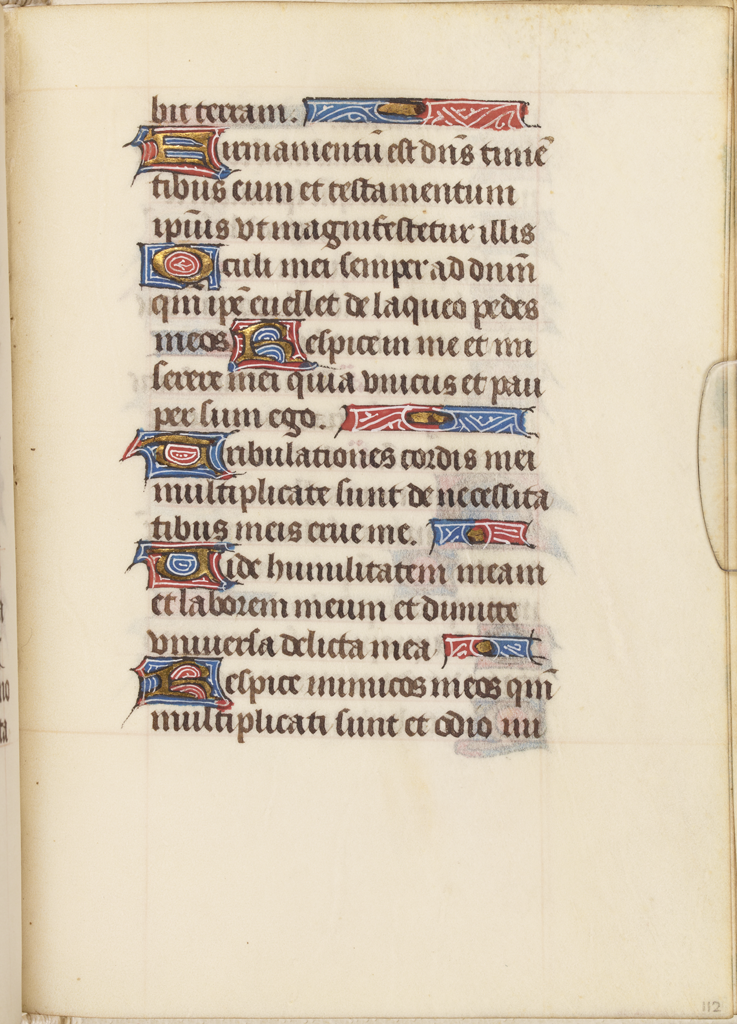 bit terram.
Firmamentū est dn̄s timē
tibus eum et testamentum
ip̄ius vt magnifestetur illis
Oculi mei semper ad dn̄m
qm̄ ip̄e euellet de laqueo pedes
meos Respice in me et mi
serere mei quia vnicus et pau
per sum ego.
Tribulationes cordis mei
multiplicate sunt de necessita
tibus meis erue me.
Uide humilitatem meam
et laborem meum et dimitte
vniuersa delicta mea
Respice inimicos meos qm̄
multiplicati sunt et odio ini
112